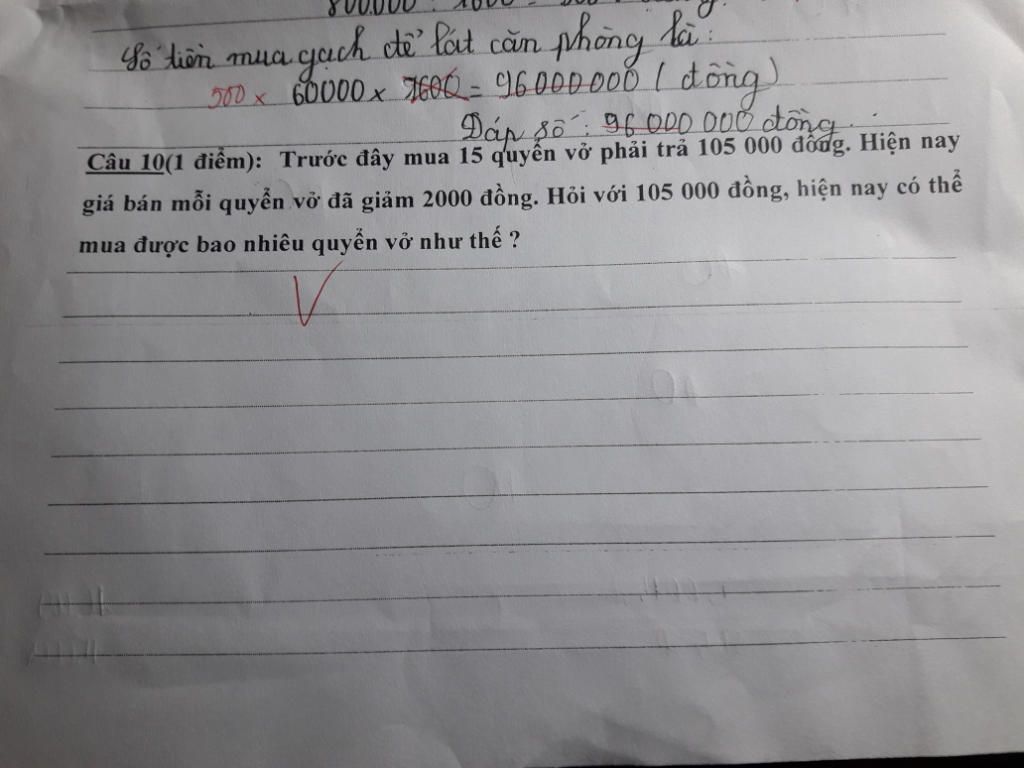 800.000 : 1600 =
Số tiền mua gạch để lát căn phòng là:
500 × 60000 × 1600 = 96000000 ( đồng)
Đáp số: 96 000 000 đồng.
Câu 10(1 điểm): Trước đây mua 15 quyển vở phải trả 105 000 đồng. Hiện nay
giá bán mỗi quyển vở đã giảm 2000 đồng. Hỏi với 105 000 đồng, hiện nay có thể
mua được bao nhiêu quyển vở như thế ?